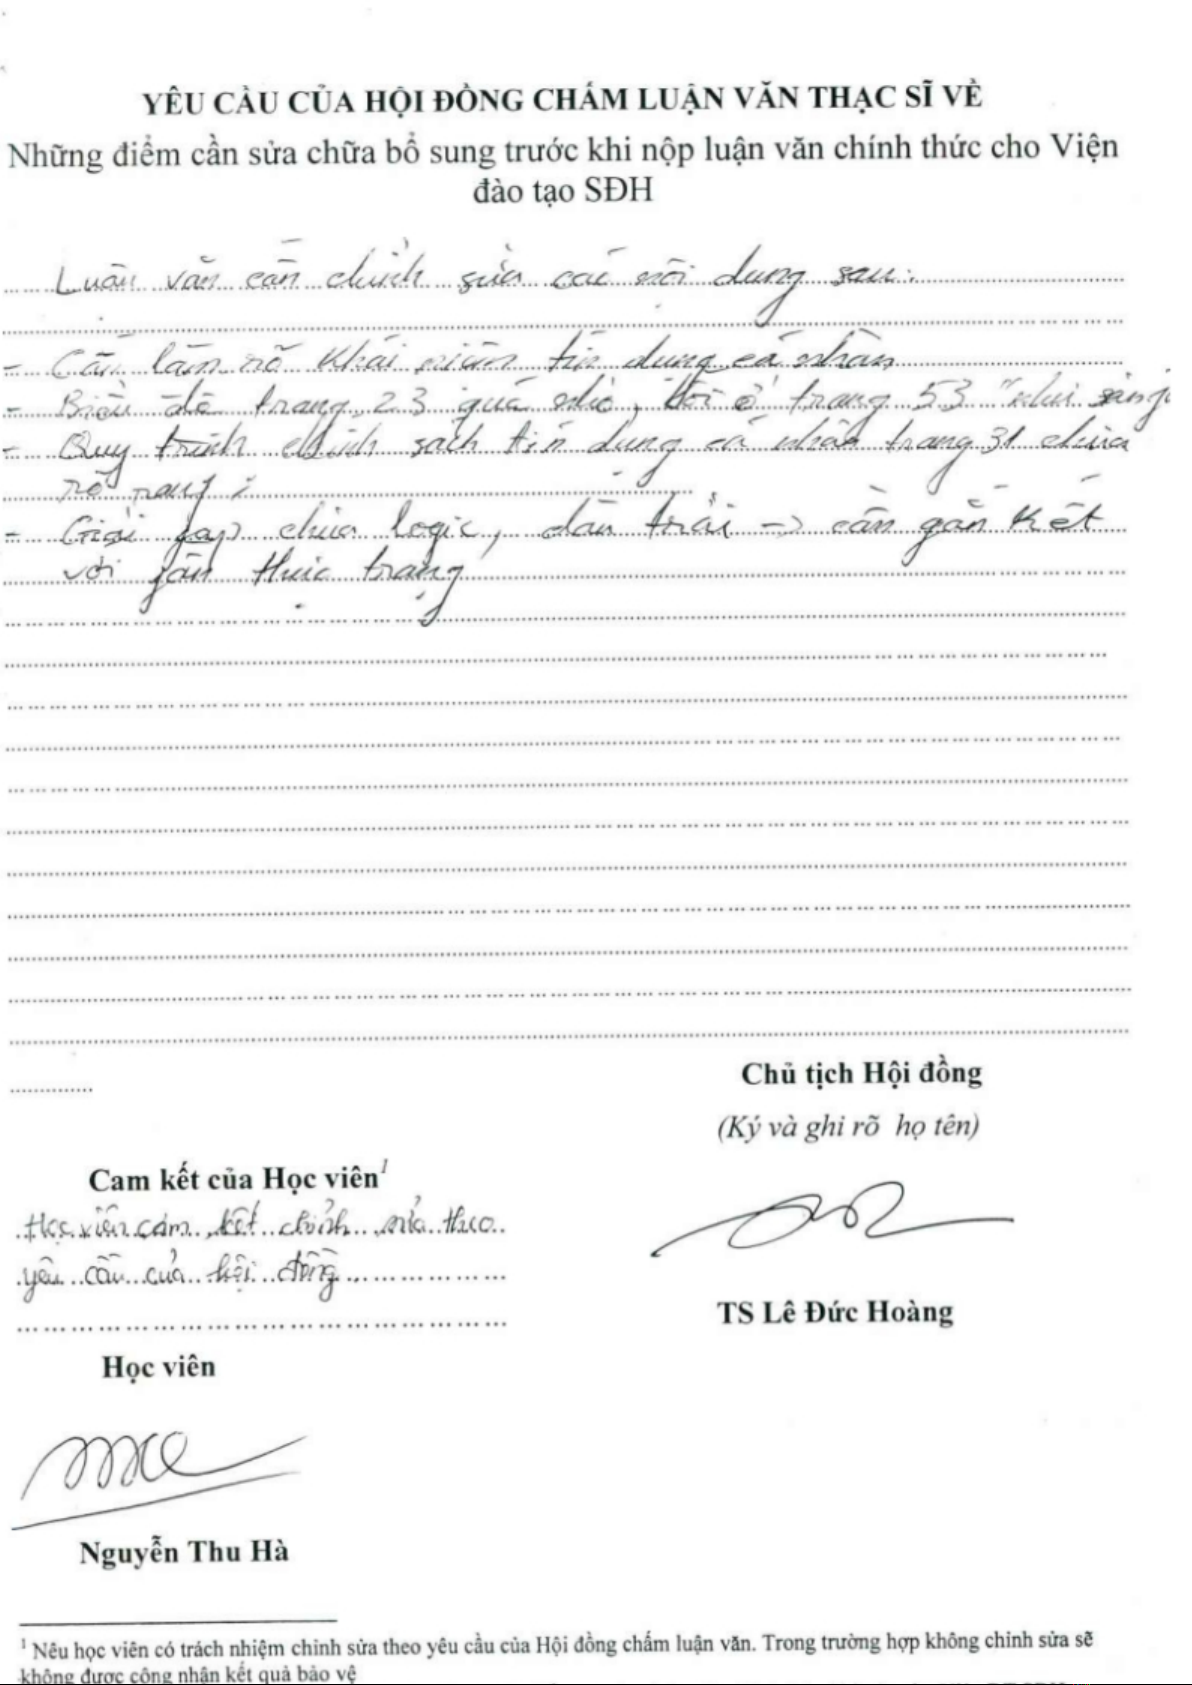 YÊU CẦU CỦA HỘI ĐỒNG CHẤM LUẬN VĂN THẠC SĨ VỀ
Những điểm cần sửa chữa bổ sung trước khi nộp luận văn chính thức cho Viện
đào tạo SĐH
Luận văn cần chỉnh sửa các nội dung sau:
- Cần làm rõ khái niệm tín dụng cá nhân
- Biểu đồ trang 23 quá nhỏ, ở trang 53
- Quy trình chính sách tín dụng cá nhân trang 31 chưa
rõ ràng;
- Giải pháp chưa logic, dàn trải -> cần gắn kết
với phần thực trạng
Chủ tịch Hội đồng
(Ký và ghi rõ họ tên)
Cam kết của Học viên¹
Học viên cam kết chỉnh sửa theo
yêu cầu của hội đồng
TS Lê Đức Hoàng
Học viên
Nguyễn Thu Hà
¹ Nêu học viên có trách nhiệm chỉnh sửa theo yêu cầu của Hội đồng chấm luận văn. Trong trường hợp không chỉnh sửa sẽ
không được công nhận kết quả bảo vệ